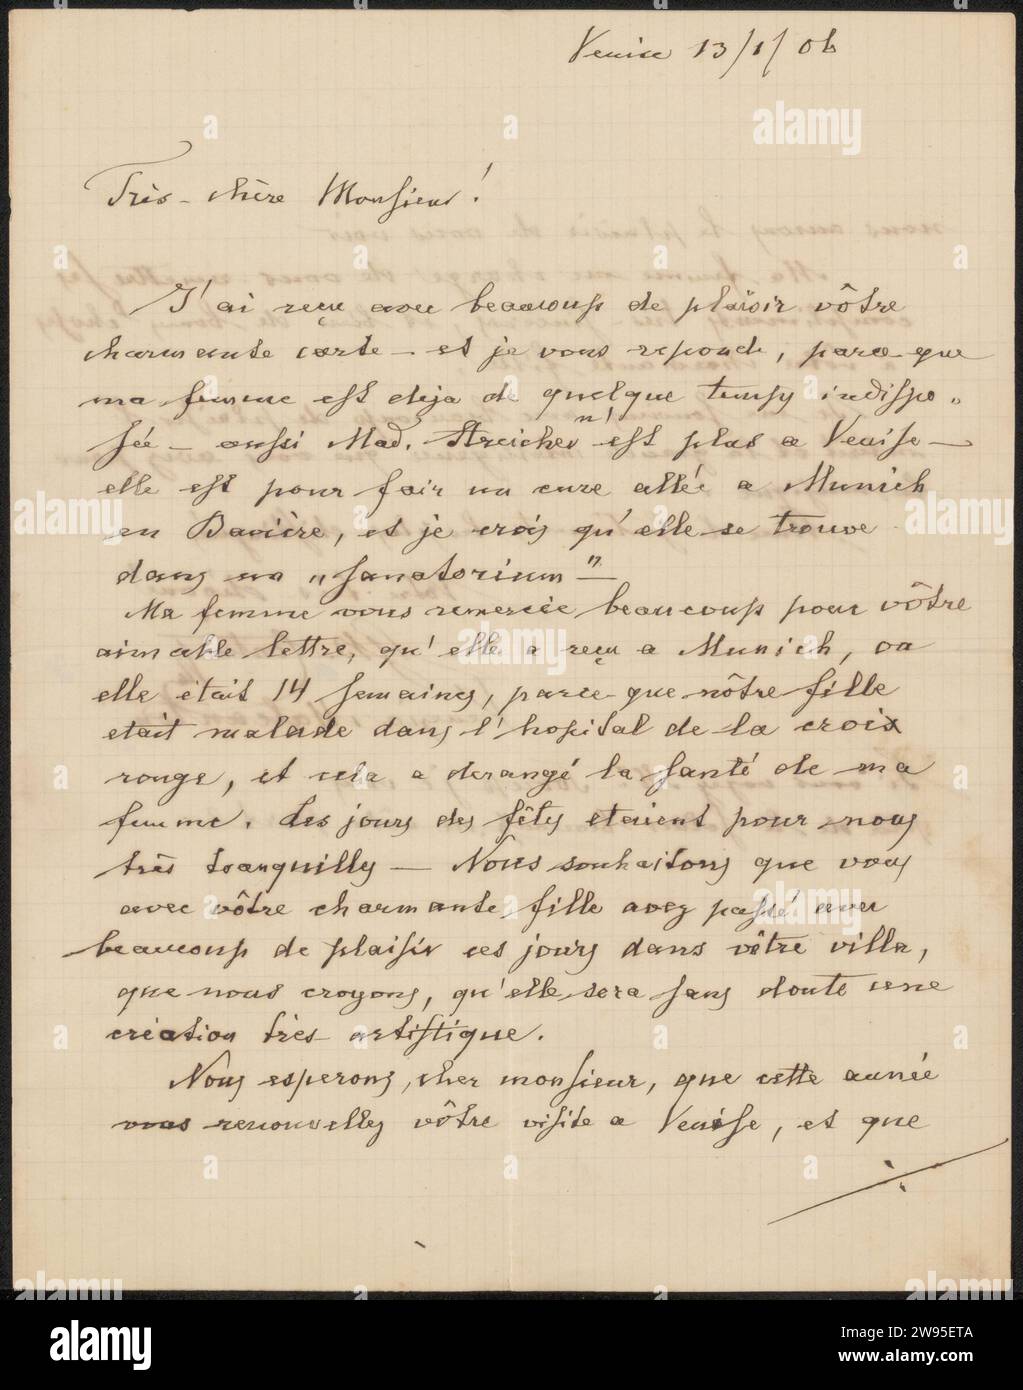 Venise 13/1/06
Très-chère Monsieur!
J'ai reçu avec beaucoup de plaisir vôtre
charmante carte - et je vous reponde, parce-que
ma femme est deja de quelque temps indispo„
sée - aussi Mad. Streicher n' est plus a Venise -
elle est pour fair un cure allée a Munich
en Bavière, et je crois qu'elle se trouve
dans un „Sanatorium" -
Ma femme vous remercie beaucoup pour vôtre
aimable lettre, qu'elle a reçu a Munich, ou
elle était 14 semaines, parce-que nôtre fille
etait malade dans l'hopital de la croix
rouge, et cela a derangé la santé de ma
femme. Les jours des fêtes etaient pour nous
très tranquilles - Nous souhaitons que vous
avec vôtre charmante fille avez passé avec
beaucoup de plaisir ces jours dans vôtre villa,
que nous croyons, qu'elle sera sans doute une
création très artistique.
Nous esperons, cher monsieur, que cette année
vous renouvelles vôtre visite a Venise, et que
./.
alamy
Image ID: 2W95ETA
www.alamy.com